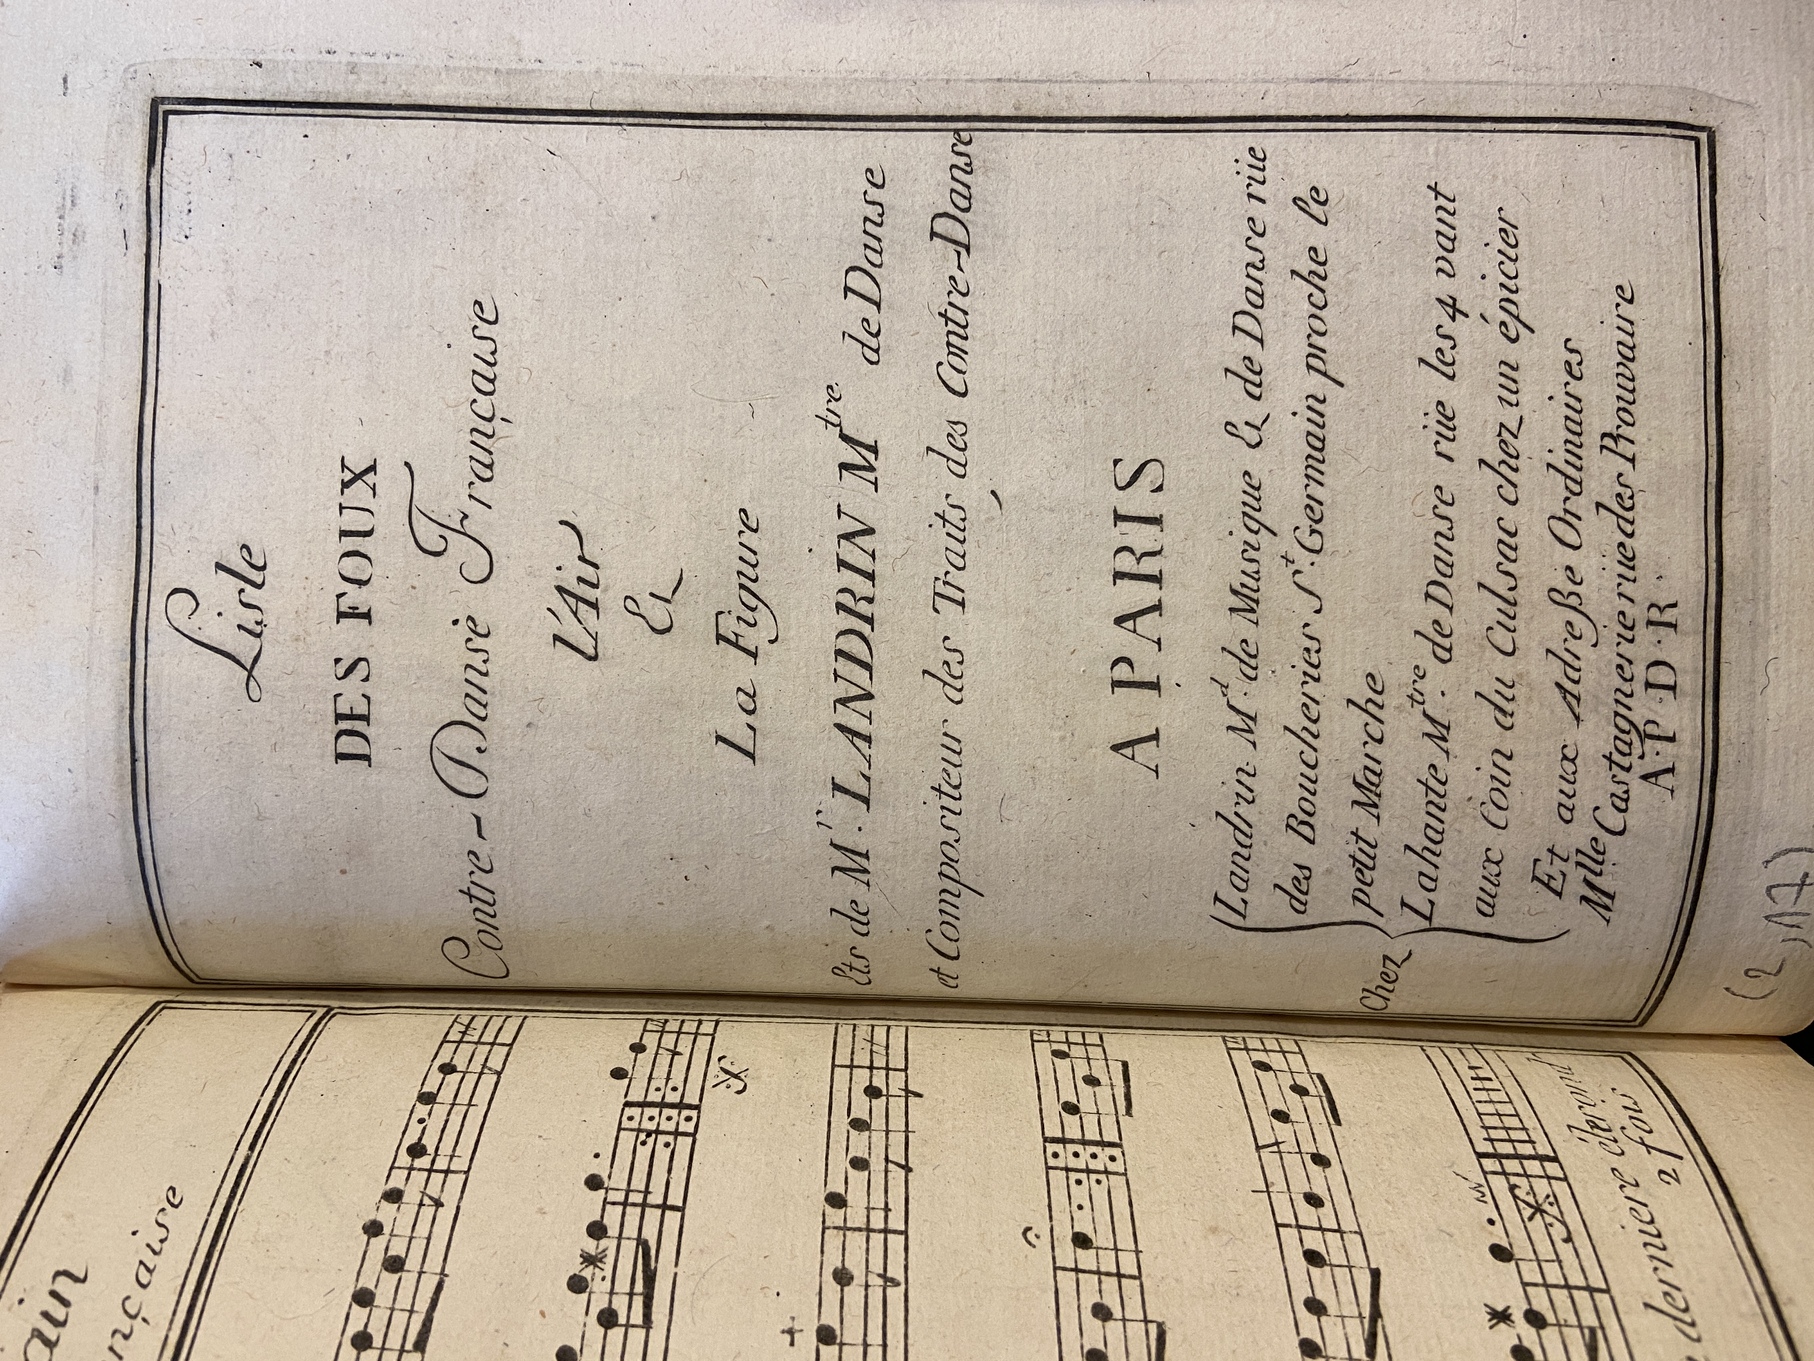 Lisle
DES FOUX
Contre-Danse Française
L'Air
Et
La Figure
Ets de Mr. LANDRIN Mtre. de Danse
et Compositeur des Traits des Contre-Danse
A PARIS
Chez
Landrin Md. de Musique Et de Danse rüe
des Boucheries St. Germain proche le
petit Marche
Lahante Mtre. de Danse rüe les 4 vant
aux Coin du Culsac chez un épicier
Et aux Adreße Ordinaires
Mlle Castagnerie rüe des Prouvaire
A.P.D.R.
(2,17)
ain
nçaise
derniere
2 fois